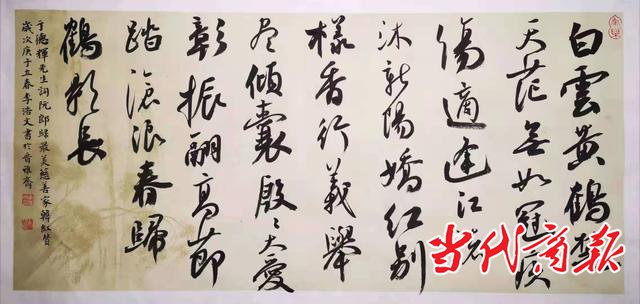 白雲黄鶴楚
天茫無如冠疫
傷適逢江
沐新陽嬌紅别
樣香行義舉
盡傾囊殷〻大愛
彰振翮高節
踏滄浪春歸
鶴影長
于德輝先生詞阮郎歸最美慈善家韓紅贊
歲次庚子立春李浩文書於雅齋
当代商报